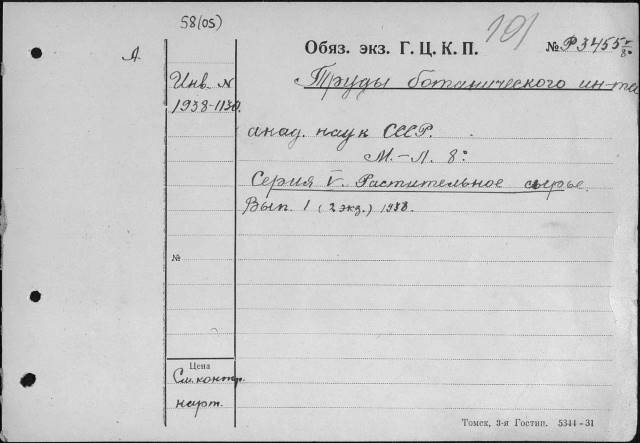 58(05)
101
А
Обяз. экз. Г. Ц. К. П.
№ Р3455 V/8°
Инв. N
1938-1130.
Труды ботанического ин-та
акад. наук СССР.
М.-Л. 8°
Серия V. Растительное сырье.
Вып. 1 (2 экз.) 1938.
№
Цена
См. контр.
карт.
Томск, 3-я Гостип. 5344-31